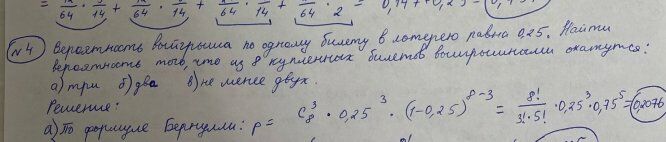 64 14 64 14 64 14 64 2
№4 Вероятность выигрыша по одному билету в лотерею равна 0,25. Найти
вероятность того, что из 8 купленных билетов выигрышными окажутся:
а) три б) два в) не менее двух.
Решение:
а) По формуле Бернулли: p = C₈³ · 0,25³ · (1-0,25)⁸⁻³ = 8!/(3!·5!) · 0,25³ · 0,75⁵ = 0,2076